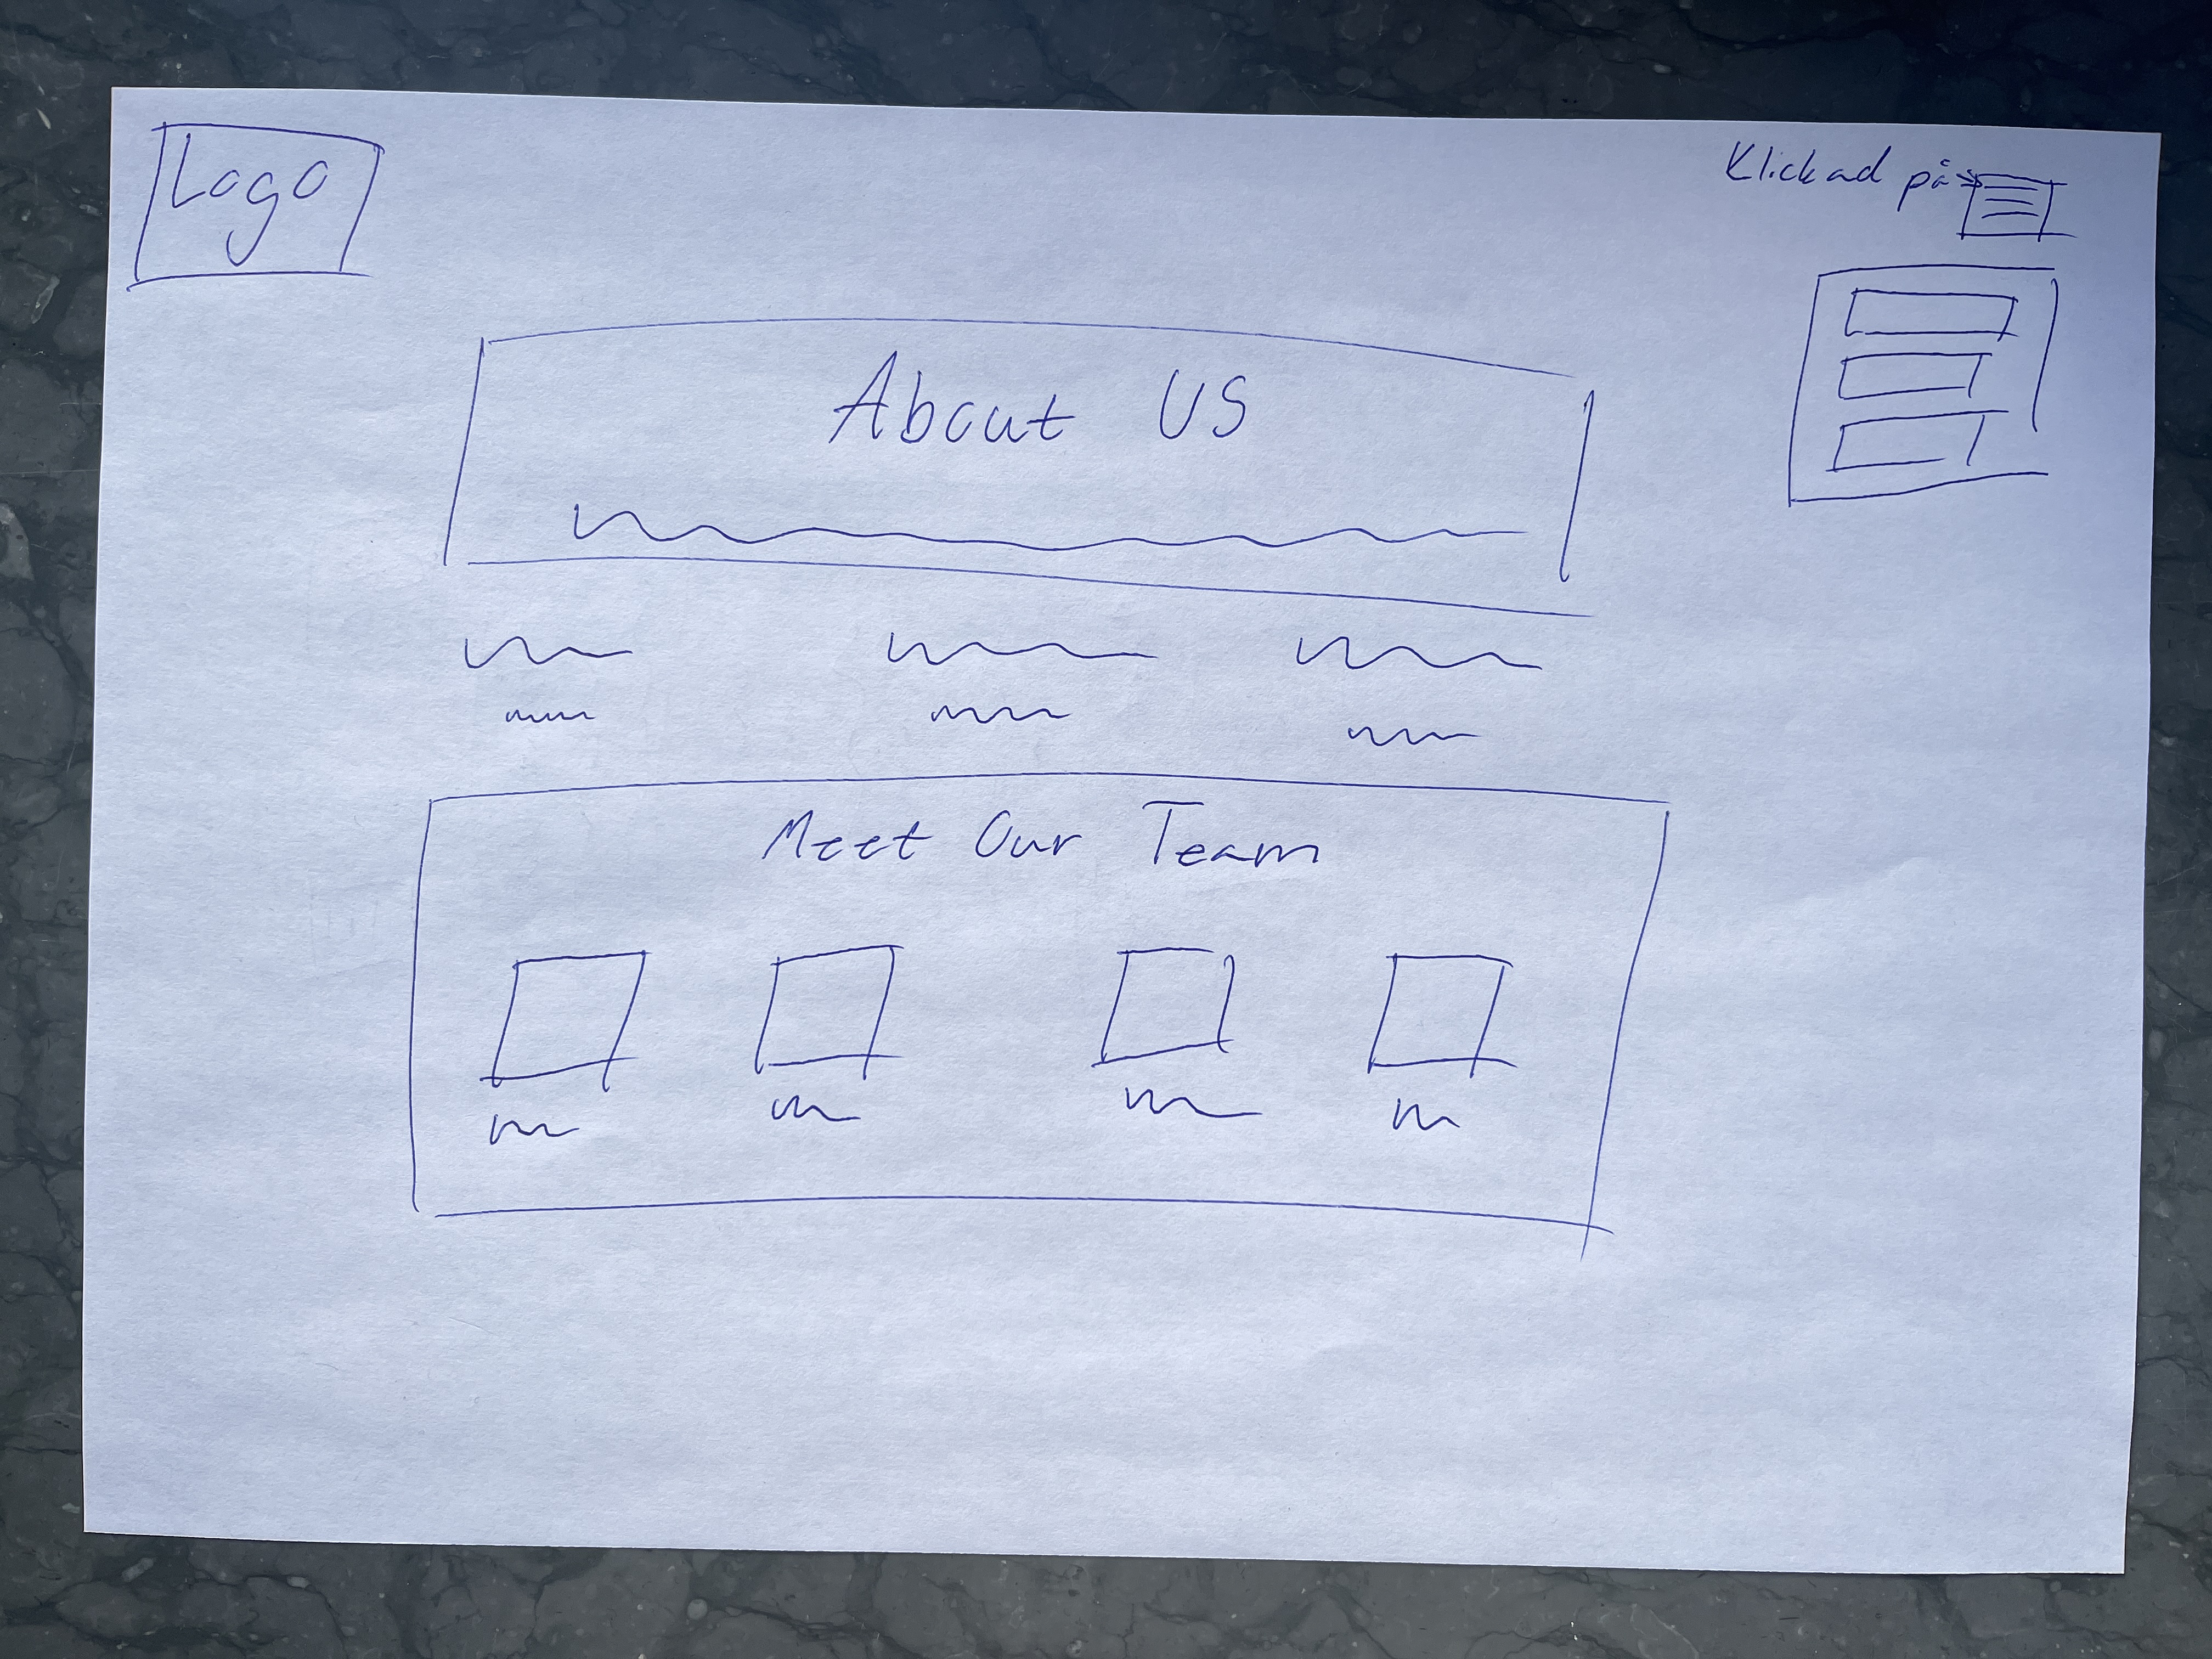 Logo
Klickad på
About US
Meet Our Team